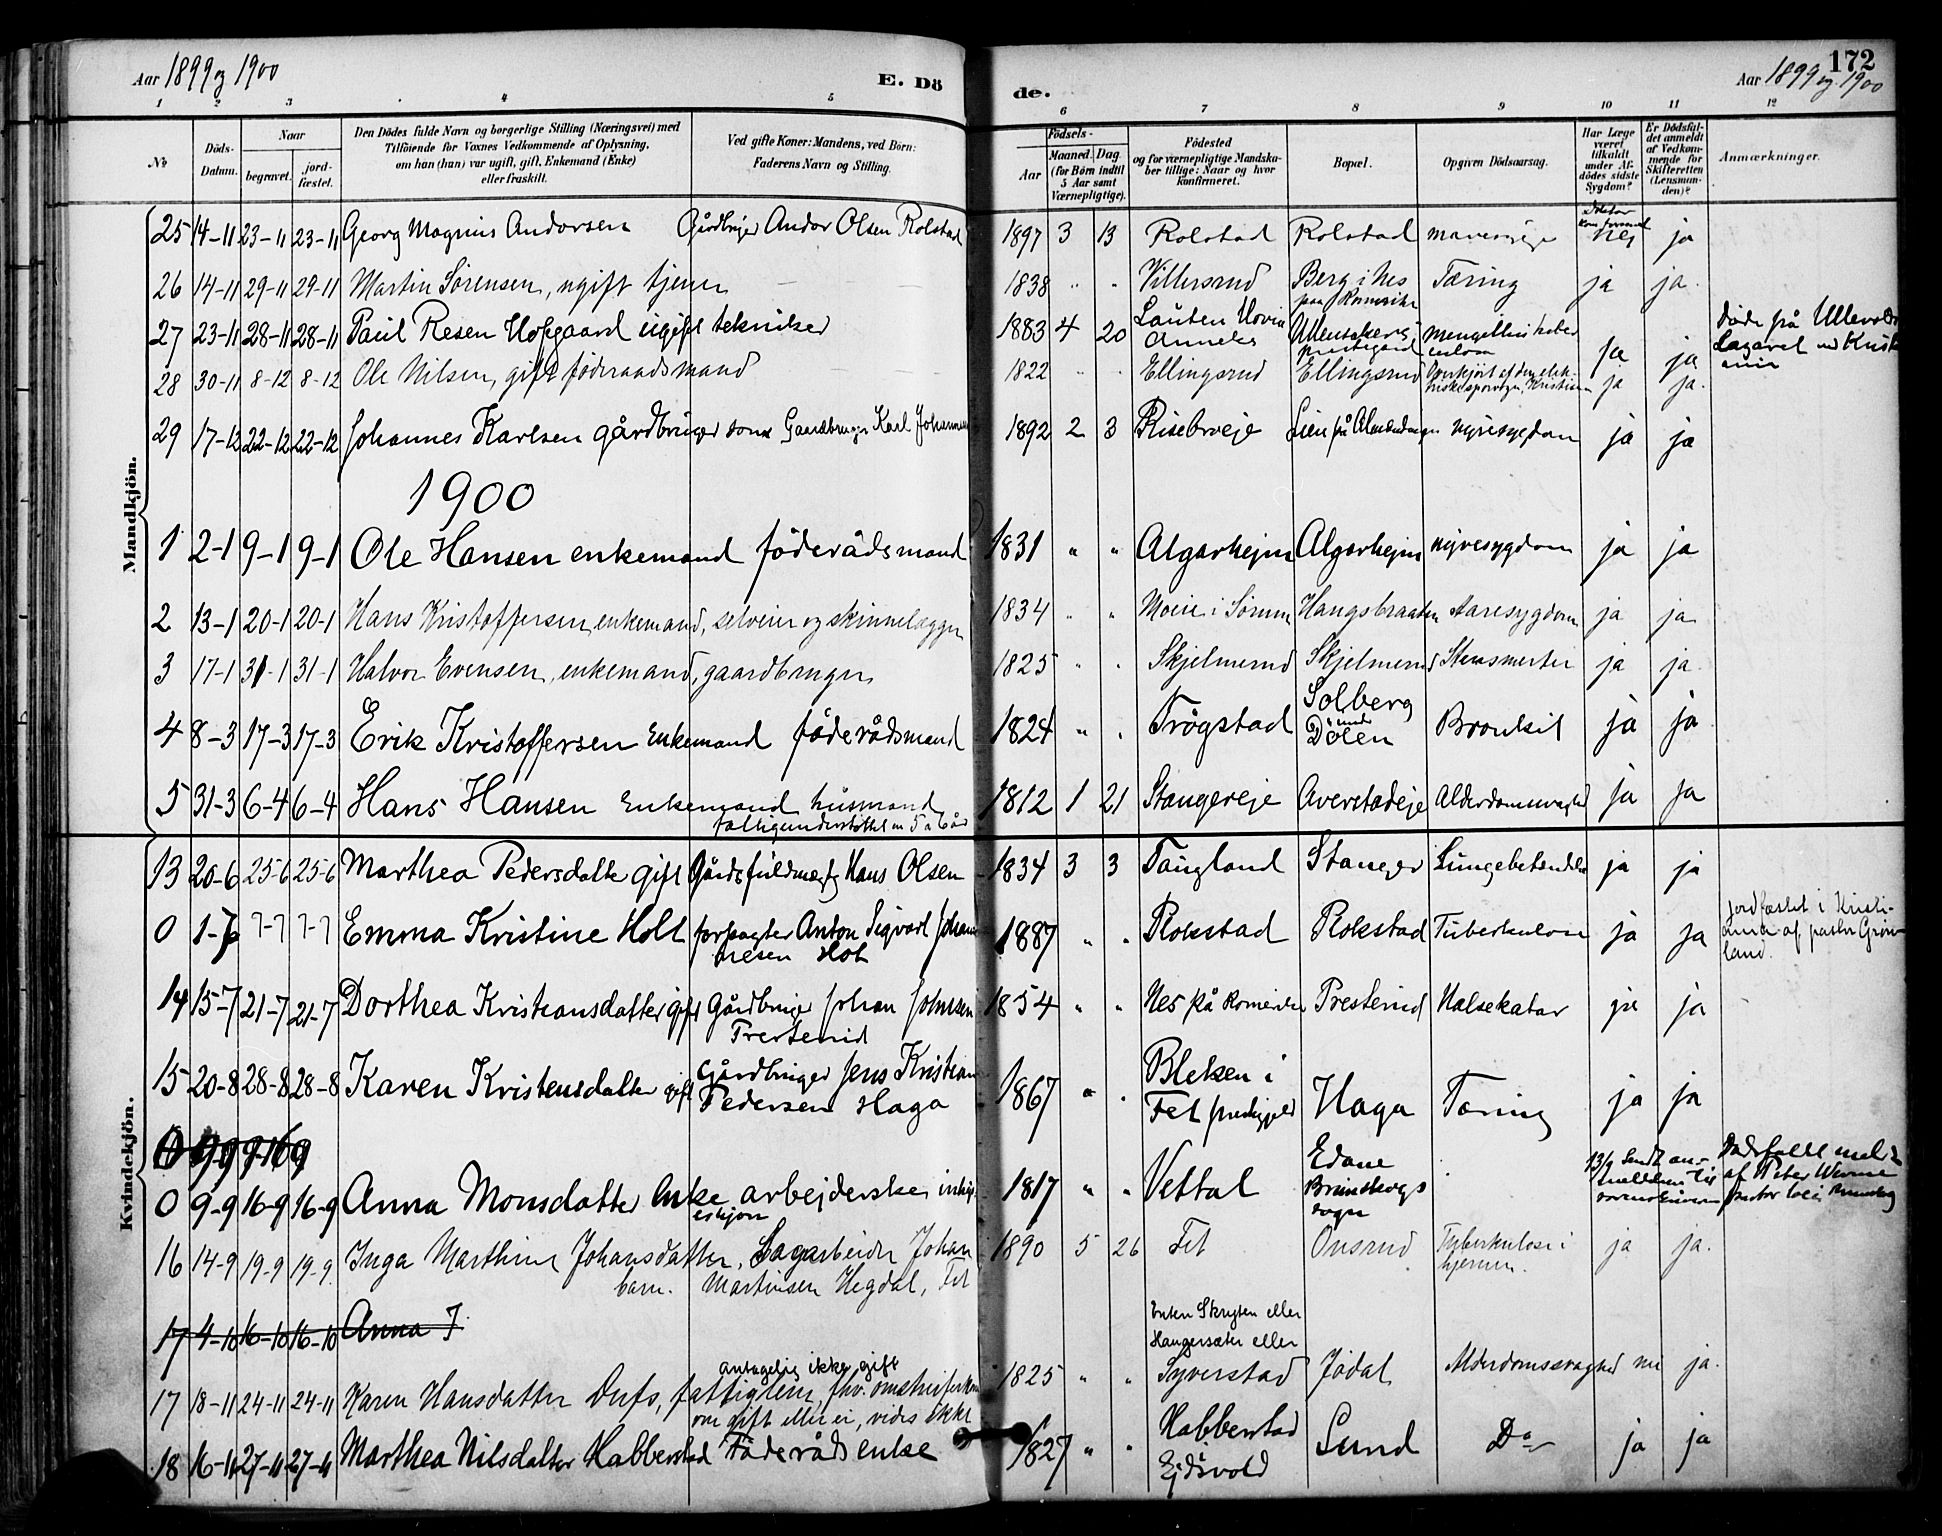 Aar 1899 og 1900
E. Dö
de.
172
Aar 1899 og 1900
1 2 3 4 5 6 7 8 9 10 11 12
No
Döds-Datum.
Naar
begravet.
jord-fæstet.
Den Dödes fulde Navn og borgerlige Stilling (Næringsvei) med
Tilföiende for Voxnes Vedkommende af Oplysning,
om han (hun) var ugift, gift, Enkemand (Enke)
eller fraskilt.
Ved gifte Koner: Mandens, ved Börn:
Faderens Navn og Stilling.
Födsels-
Aar
Maaned. Dag
(for Börn indtil
5 Aar samt
Værnepligtige).
Födested
og for værnepligtige Mandska-
ber tillige: Naar og hvor
konfirmeret.
Bopæl.
Opgiven Dödsaarsag.
Har Læge
været
tilkaldt
under Af-
dödes sidste
Sygdom?
Er Dödsfal-
det anmeldt
af Vedkom-
mende for
Skifteretten
(Lensman-
den)?
Anmærkninger.
Mandkjön.
25 14-11 23-11 23-11 Georg Magnus Andorsen Gårdbruger Andor Olsen Rolstad 1897 3 13 Rolstad Rolstad mavesyge Doktor kom forsent nei ja
26 14-11 29-11 29-11 Martin Sörensen, ugift tjener 1838 " " Villersrud Berg i Nes paa Romerike Tæring ja ja.
27 23-11 28-11 28-11 Paul Resen Hofgaard ugift tekniker 1883 4 20 Lauten Hovin Anneks Ullensakers prestegård ja ja Döde på Ullevold Lazaret ved Kristiania
28 30-11 8-12 8-12 Ole Nilsen, gift föderaadsmand 1822 " " Ellingsrud Ellingsrud Overkjört af den elektriske sporvogn, Kristiania ja ja.
29 17-12 22-12 22-12 Johannes Karlsen gårdbruger sön Gaardbruger Karl Johannesen 1892 2 3 Risebroeje Lien på Almendingen nyresygdom ja ja
1900
1 2-1 9-1 9-1 Ole Hansen enkemand föderådsmand 1831 " " Algarhejm Algarhejm nyresygdom ja ja
2 13-1 20-1 20-1 Hans Kristoffersen, enkemand, selveier og skinnelægger 1834 " " Moeie i Sörum Hangsbraaten Aaresygdom ja ja
3 17-1 31-1 31-1 Halvor Evensen, enkemand, gaardbruger 1825 " " Skjelmerud Skjelmerud Stensmerter ja ja.
4 8-3 17-3 17-3 Erik Kristoffersen Enkemand föderådsmand 1824 " " Trögstad Solberg under Dölen Bronkit ja ja
5 31-3 6-4 6-4 Hans Hansen Enkemand husmand fattigunderstöttet en 5 a 6 år 1812 1 21 Stangereje Averstadeje Alderdomssvaghed ja ja
Kvindekjön.
13 20-6 25-6 25-6 Marthea Pedersdatter gift Gårdsfuldmægtig Hans Olsen 1834 3 3 Taugland Stanger Lungebetendelse ja ja
0 1-7 7-7 7-7 Emma Kristine Holt forpagter Anton Sigvart Johannesen Holt 1887 " " Rokstad Rokstad Tuberkulose ja ja jordfæstet i Kristiania af pastor Grönland.
14 15-7 21-7 21-7 Dorthea Kristiansdatter gift Gårdbruger Johan Johnsen Presterud 1854 " " Nes på Romerike Presterud Halsekatar ja ja
15 20-8 28-8 28-8 Karen Kristensdatter gift Gårdbruger Jens Kristian Pedersen Haga 1867 " " Bleken i Fet prestegjeld Haga Tæring ja ja
0 9-9 16-9 16-9 Anna Monsdatter Enke arbejderske 1817 " " Vettal Edane Brunskogs sogn 13/9 Sendt anmeldelse til sorenskriveren
16 14-9 19-9 19-9 Inga Marthine Johansdatter, barn. Sagarbeider Johan Martinsen Hegdal, Fet 1890 5 26 Fet Onsrud Tyberkulose i hjernen. ja ja.
17 4-10 16-10 16-10 Anna J
17 18-11 24-11 24-11 Karen Hansdatter Dufs, fattiglem, fhv. omstreiferske antagelig ikke gift om gift eller ei, vides ikke 1825 " " Enten Skrysten eller Haugersæter eller Syverstad Jödal Alderdomssvaghed nei ja.
18 16-11 27-11 27-11 Marthea Nilsdatter Habberstad Föderådsenke 1827 " " Habberstad i Ejdsvold Lund Do ja ja